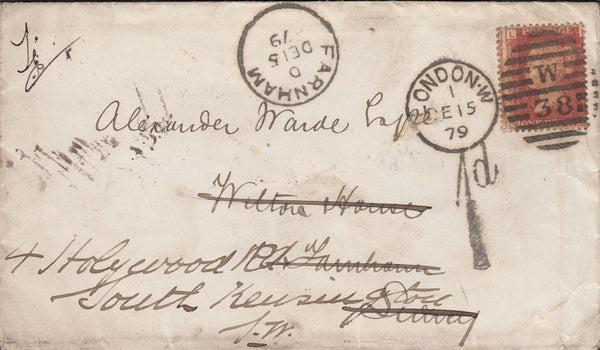 FARNHAM
D
DE 15
79
LONDON·W
1
DE 15
79
L
W
38
1d
Alexander Warde Esqre
Wilton House
4 Holywood Rd. Farnham
South Kensington
S.W.